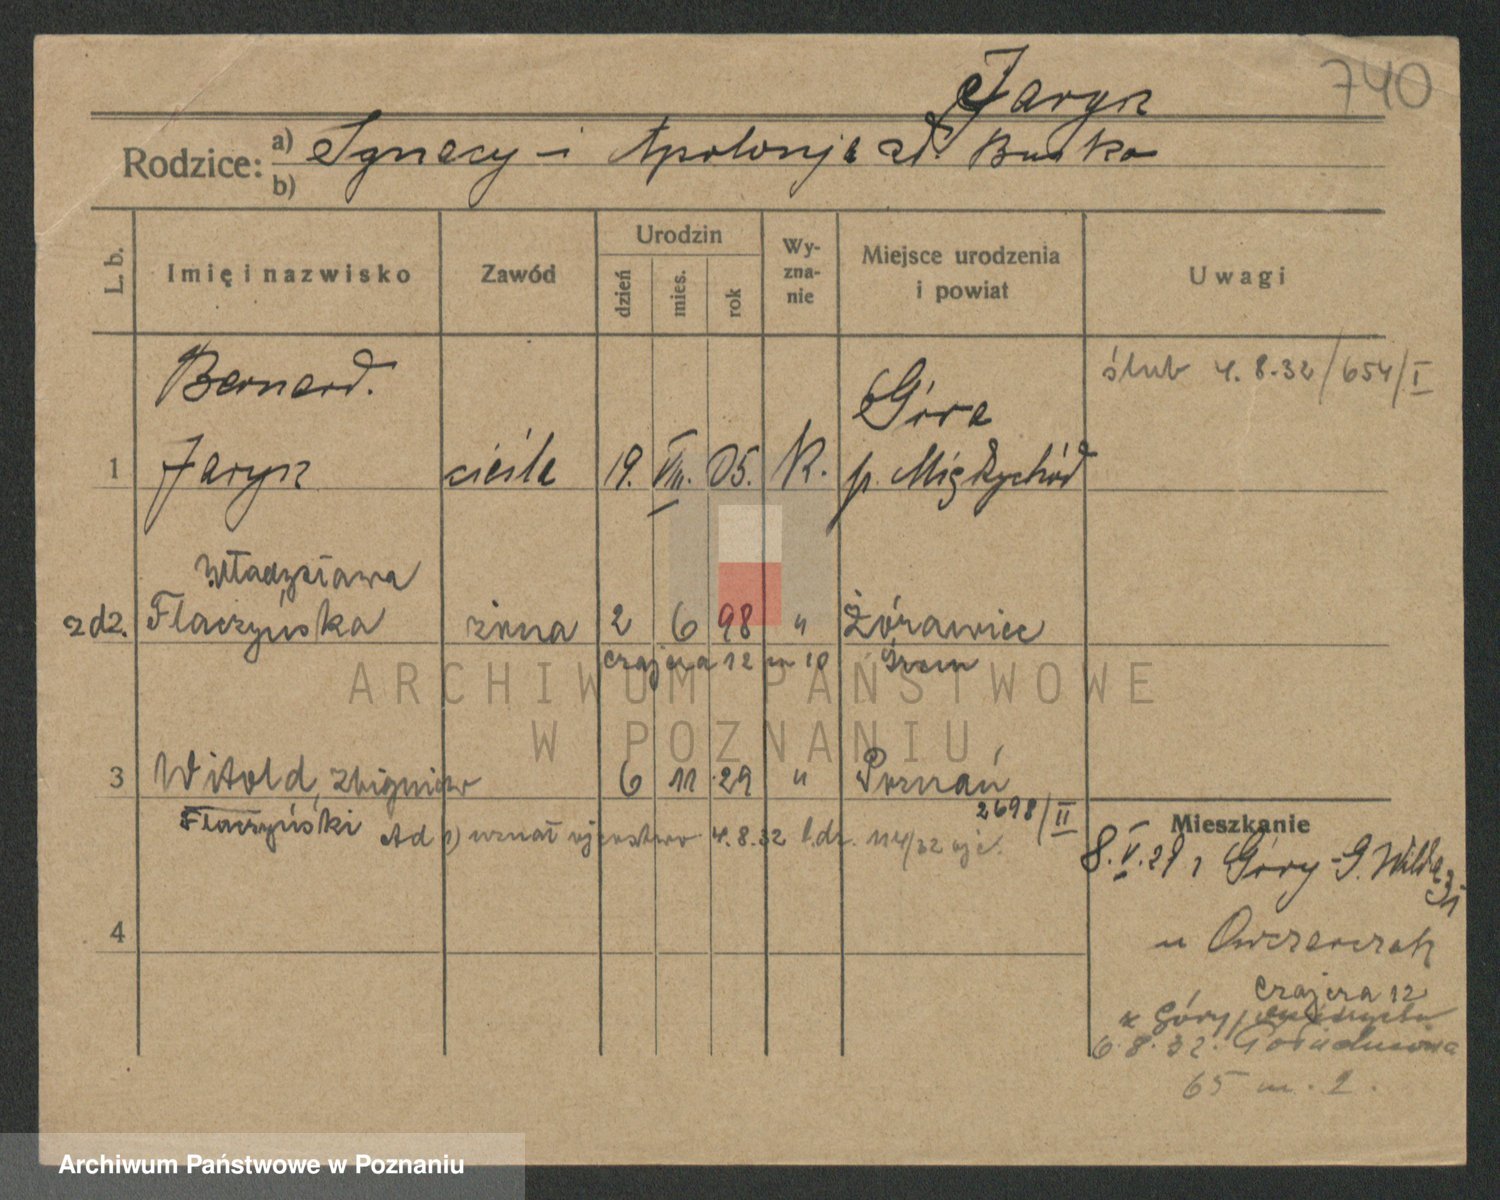 740
Jaryn
Rodzice: a) Ignacy i Apolonja zd. Buśko
b)
L. b.
Imię i nazwisko
Zawód
Urodzin
dzień
mies.
rok
Wy-
zna-
nie
Miejsce urodzenia
i powiat
Uwagi
ślub 4.8.32/654/I
Bernard.
Góra
1 Jaryn cieśla 19. VIII. 05. K. p. Międzychód
Władysława
zd2. Flaczyńska żona 2 6 98 " Żórawiec
Czajcza 12 m 10 Śrem
3 Witold, Zbigniew 6 11 29 " Poznań
2698/II
Flaczyński
Ad 3) uznał ojcostwo 4.8.32 l.dz. 114/32 ojc.
Mieszkanie
8.V.29 z Góry - G. Wilda 31
4
u Owczarczak
Czajcza 12
z Góry,
6.8.32.
65 m. 2.
ARCHIWUM PAŃSTWOWE
W POZNANIU
Archiwum Państwowe w Poznaniu